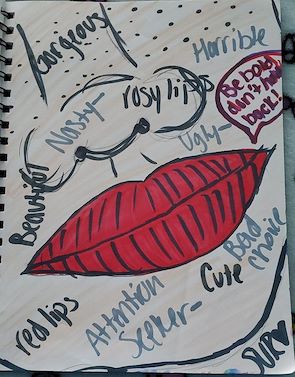 Gorgeous
Horrible
rosy lips
Nasty-
Ugly-
Be bold,
don't hold
back!
Beautiful
Bad
choice
Cute
Attention
Seeker-
red lips